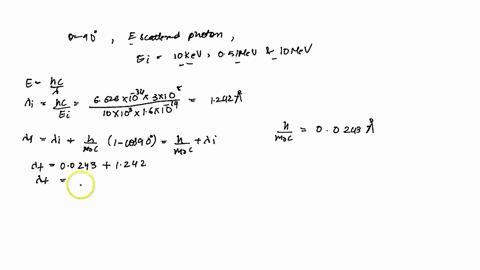 θ=90°, E scattered photon,
Ei = 10 KeV, 0.51MeV & 10 MeV
E = hc/λ
λi = hc/Ei = 6.626×10^-34 × 3×10^8 / 10×10^3 × 1.6×10^-19 = 1.242 Å
λf = λi + h/m₀c (1-cos90°) = h/m₀c + λi
h/m₀c = 0.0243 Å
λf = 0.0243 + 1.242
λf = .